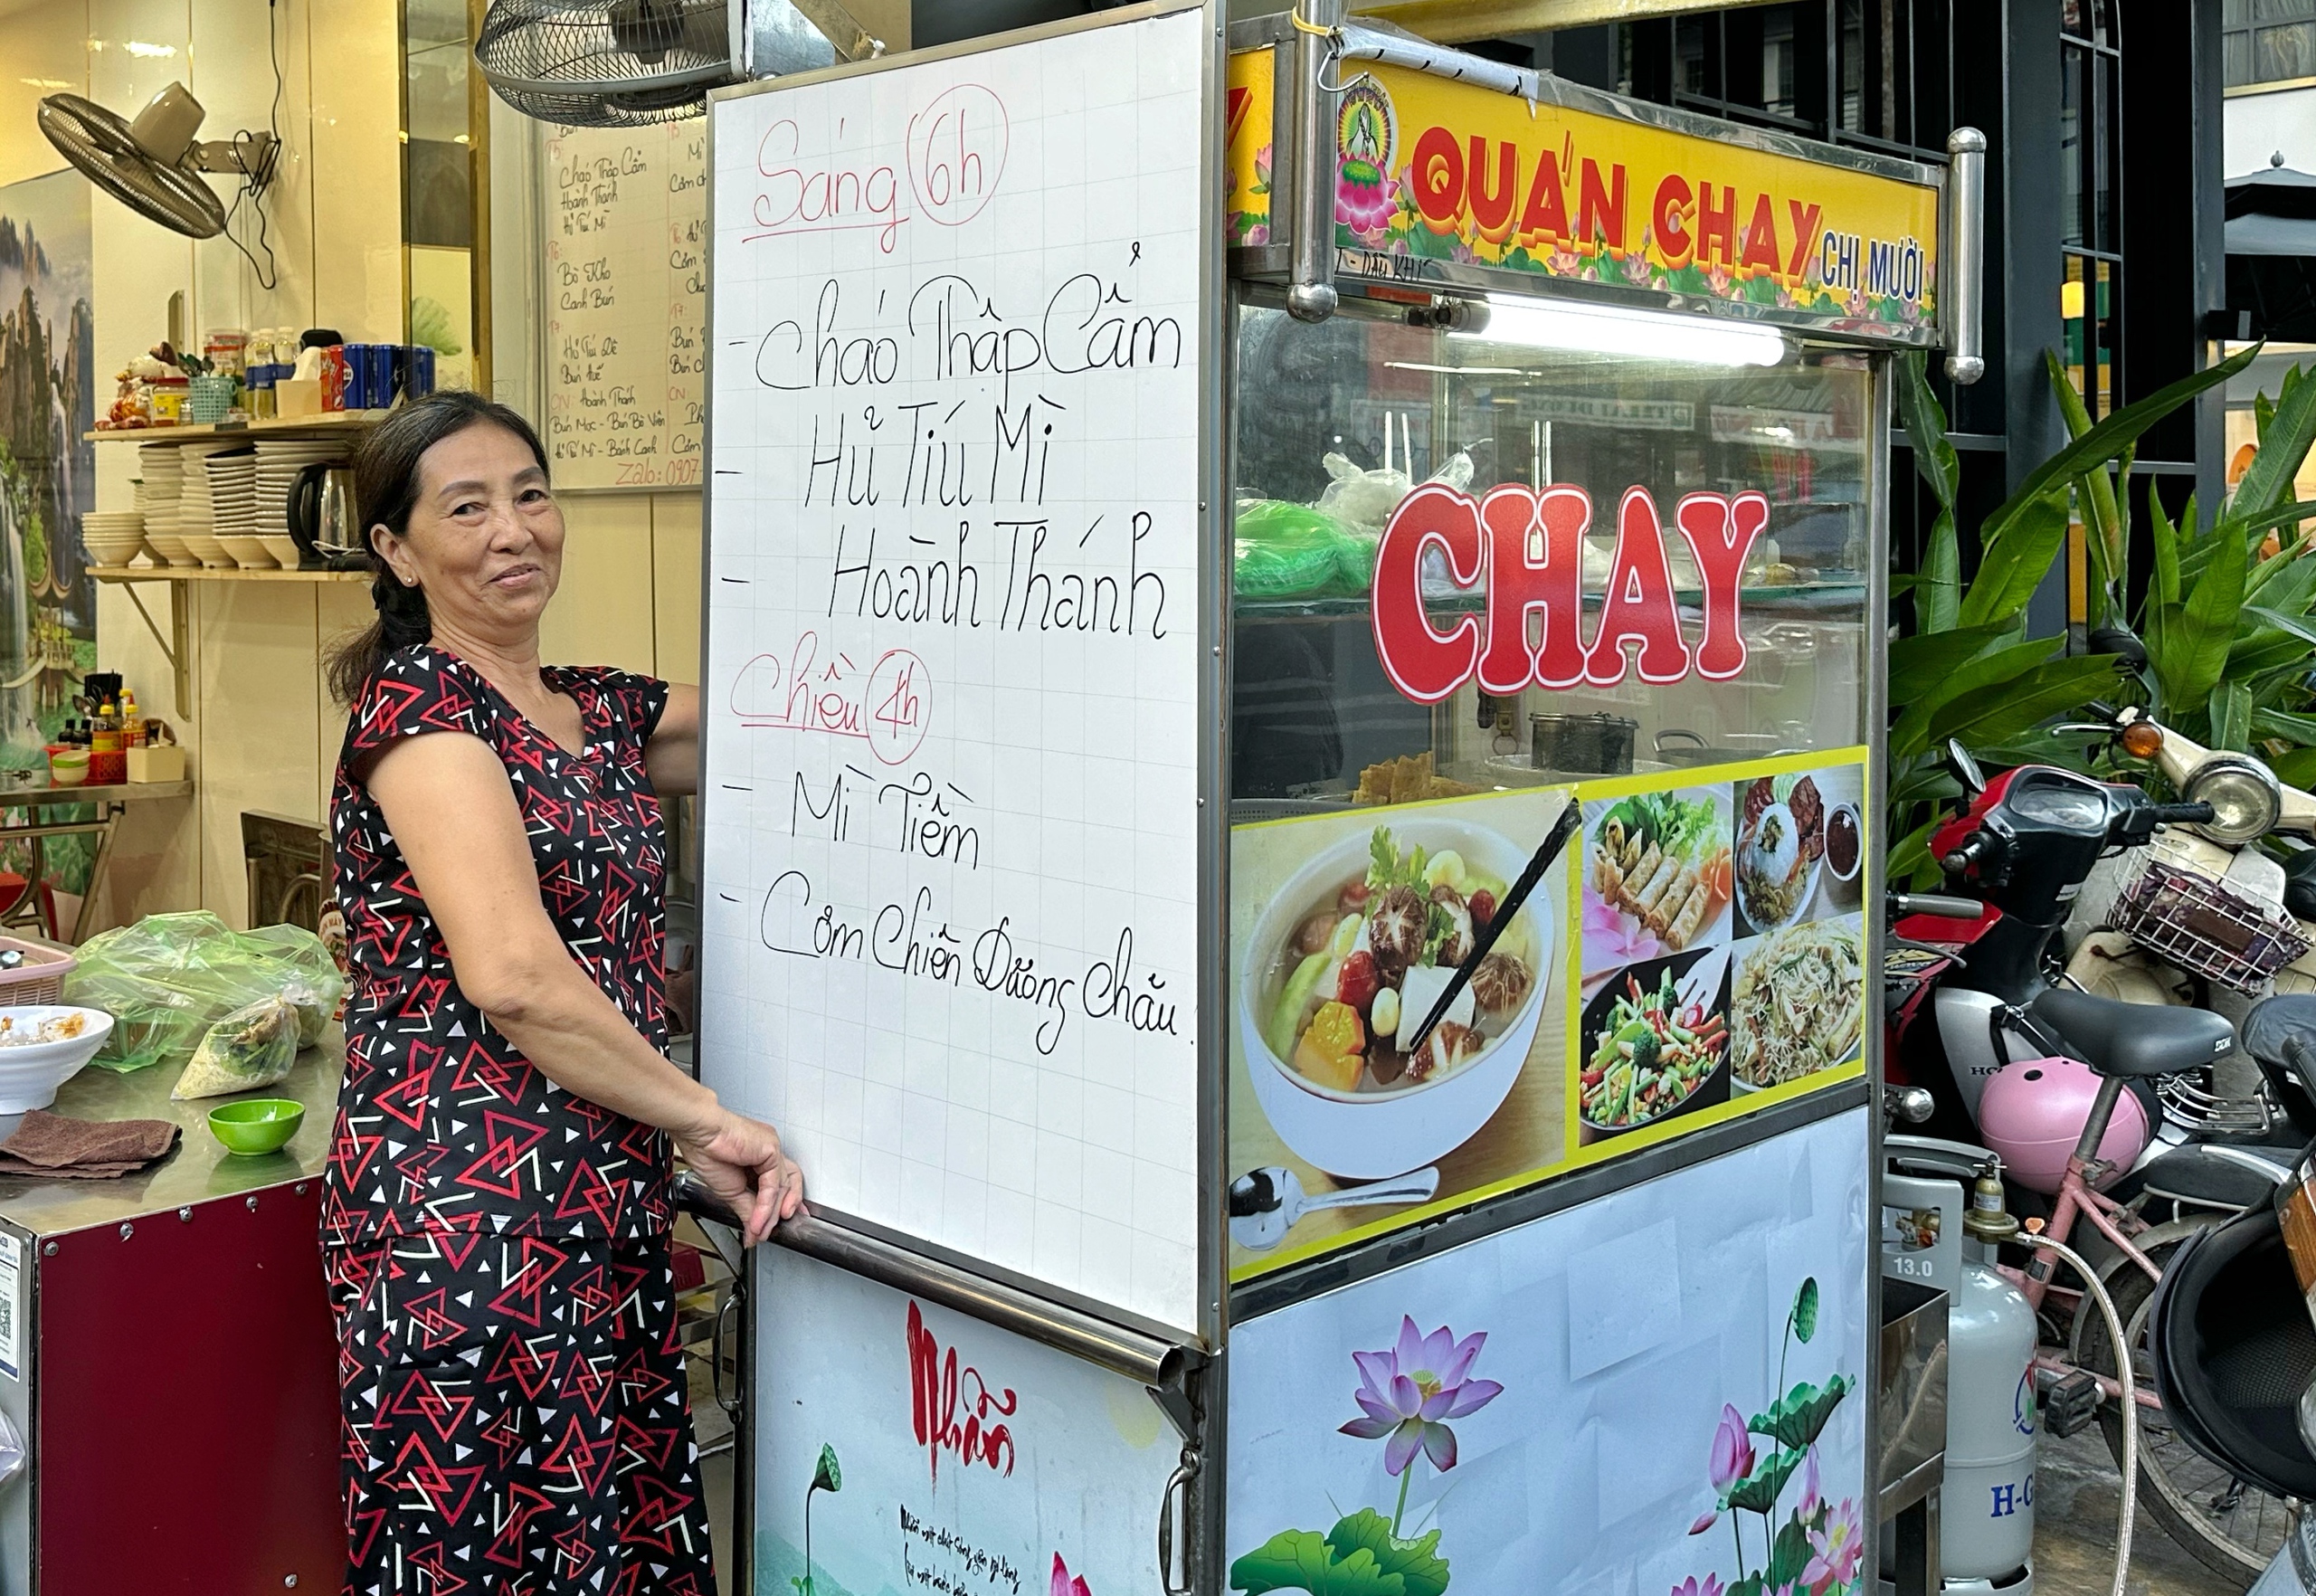 Sáng 6h
- Cháo Thập Cẩm
- Hủ Tiú Mì
- Hoành Thánh
Chiều 4h
- Mì Tiềm
- Cơm Chiên Dương Châu.
QUÁN CHAY CHỊ MƯỜI
CHAY
Nhẫn
Cháo Thập Cẩm
Hoành Thánh
Hủ Tiú Mì
Bò Kho
Canh Bún
Bún Huế
CN: Hoành Thánh
Bún Mọc - Bún Bò Viên
Hủ Tiú Mì - Bánh Canh
Zalo: 0907
13.0